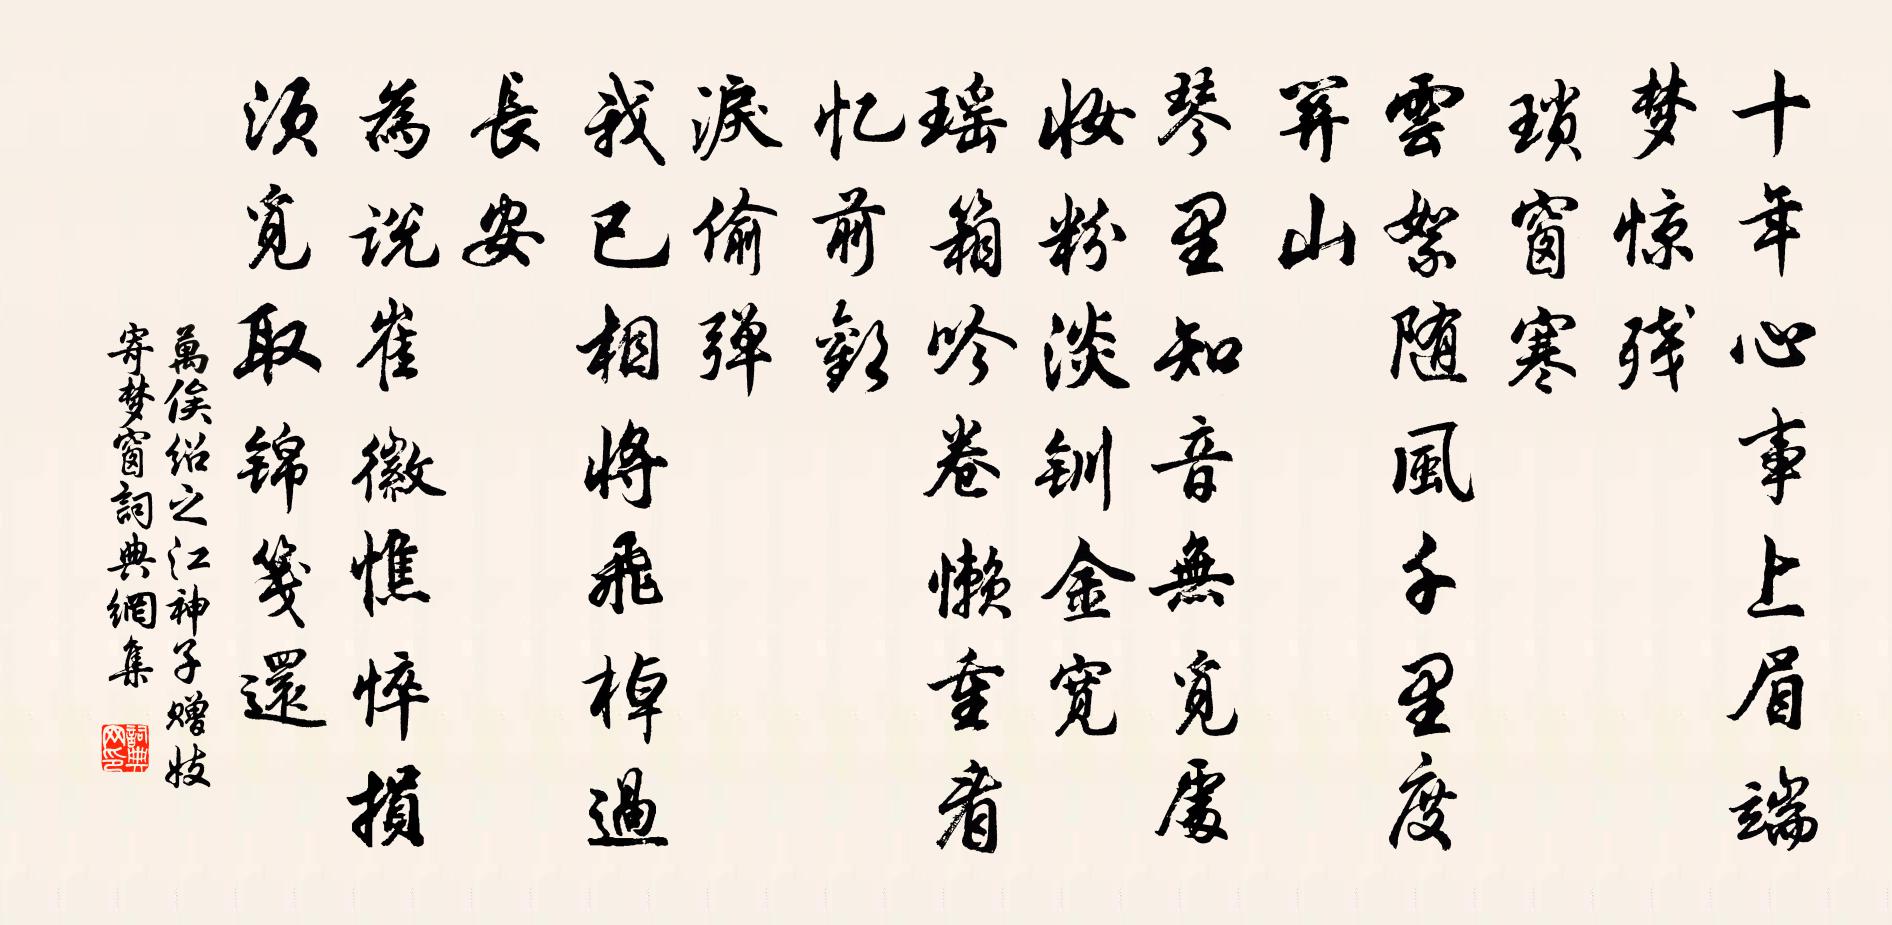 十年心事上眉端
梦惊残
琐窗寒
雲絮随風千里度
關山
琴里知音無覓處
妝粉淡釧金寬
瑶箱吟卷懒重看
忆前歡
淚偷弹
我已相將飛棹過
長安
為说崔徽憔悴損
須覓取錦箋還
萬俟绍之江神子赠妓
寄梦窗詞典網集
詞典网印